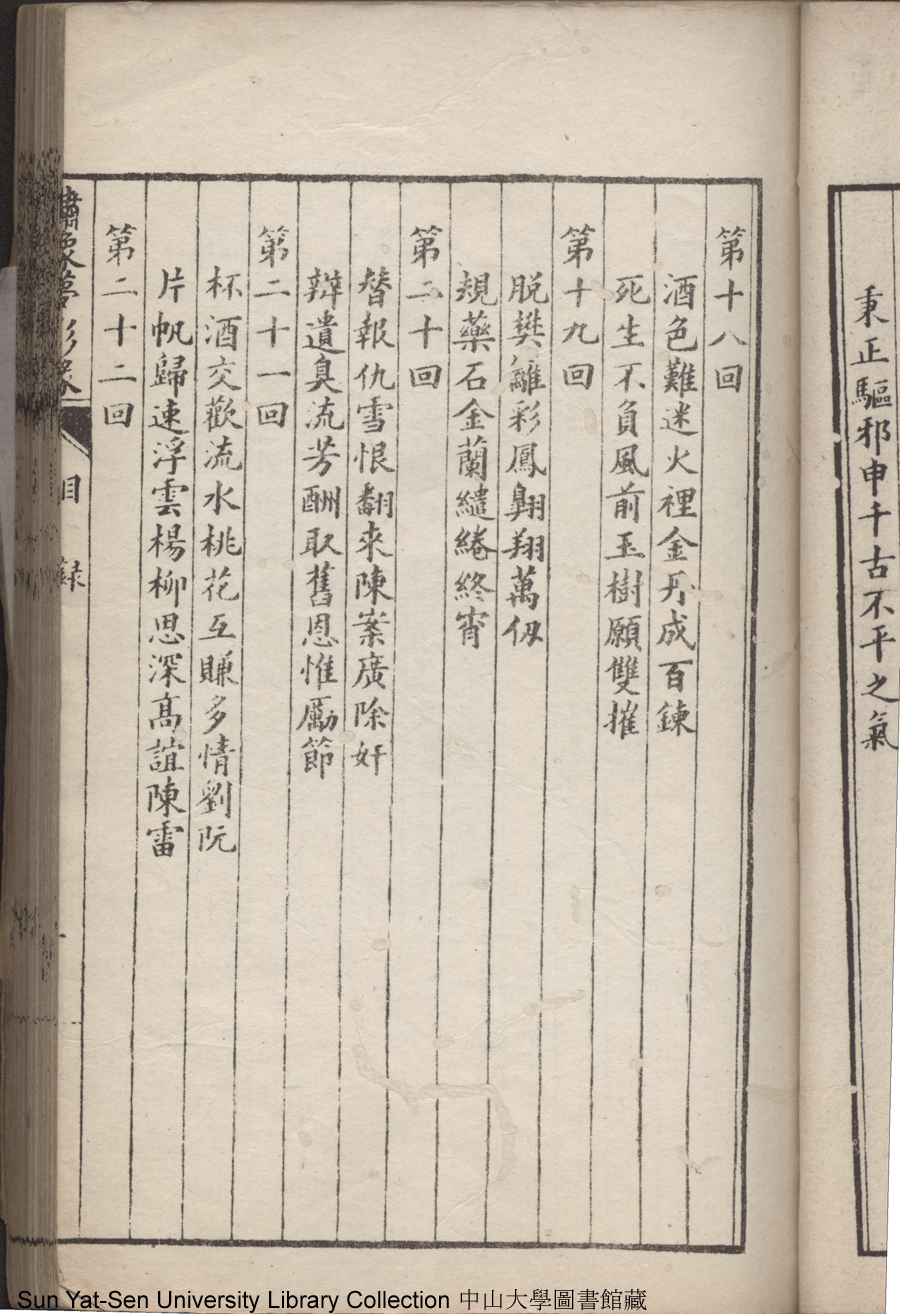 秉正驅邪申千古不平之氣
第十八回
酒色難迷火裡金丹成百鍊
死生不負風前玉樹願雙摧
第十九回
脫樊籬彩鳳翺翔萬仭
規藥石金蘭繾綣終宵
第二十回
替報仇雪恨翻來陳案廣除奸
辨遺臭流芳酬取舊恩惟勵節
第二十一回
杯酒交歡流水桃花互賺多情劉阮
片帆歸速浮雲楊柳思深高誼陳雷
第二十二回
繡像夢影緣
目錄
Sun Yat-Sen University Library Collection 中山大學圖書館藏